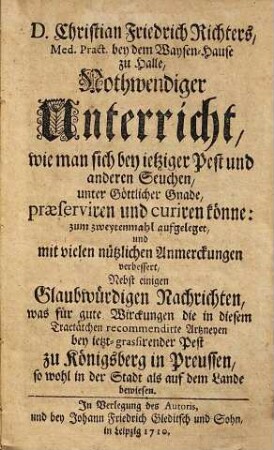 D. Christian Friedrich Richters,
Med. Pract. bey dem Waysen-Hause
zu Halle,
Nothwendiger
Unterricht,
wie man sich bey ietziger Pest und
anderen Seuchen,
unter Göttlicher Gnade,
præserviren und curiren könne:
zum zweytenmahl aufgeleget,
und
mit vielen nützlichen Anmerckungen
verbessert,
Nebst einigen
Glaubwürdigen Nachrichten,
was für gute Wirckungen die in diesem
Tractätchen recommendirte Artzneyen
bey ietzt-grassirender Pest
zu Königsberg in Preussen,
so wohl in der Stadt als auf dem Lande
bewiesen.
In Verlegung des Autoris,
und bey Johann Friedrich Gleditsch und Sohn,
in Leipzig 1710.